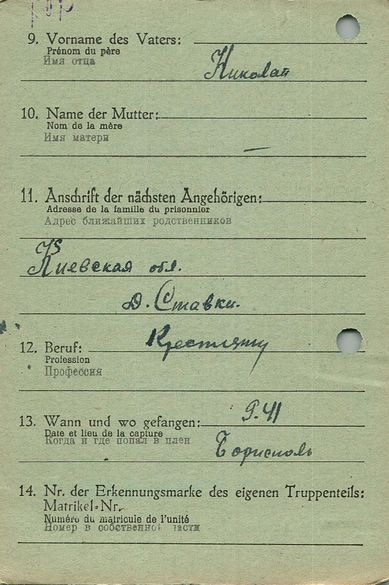 9. Vorname des Vaters:
Prénom du père
Имя отца
Николай
10. Name der Mutter:
Nom de la mère
Имя матери
—
11. Anschrift der nächsten Angehörigen:
Adresse de la famille du prisonnier
Адрес ближайших родственников
Киевская обл.
д. Ставки.
12. Beruf:
Profession
Профессия
13. Wann und wo gefangen:
9.41
Date et lieu de la capture
Когда и где попал в плен
Борисполь
14. Nr. der Erkennungsmarke des eigenen Truppenteils:
Matrikel-Nr.
Numéro du matricule de l'unité
Номер в собственной части